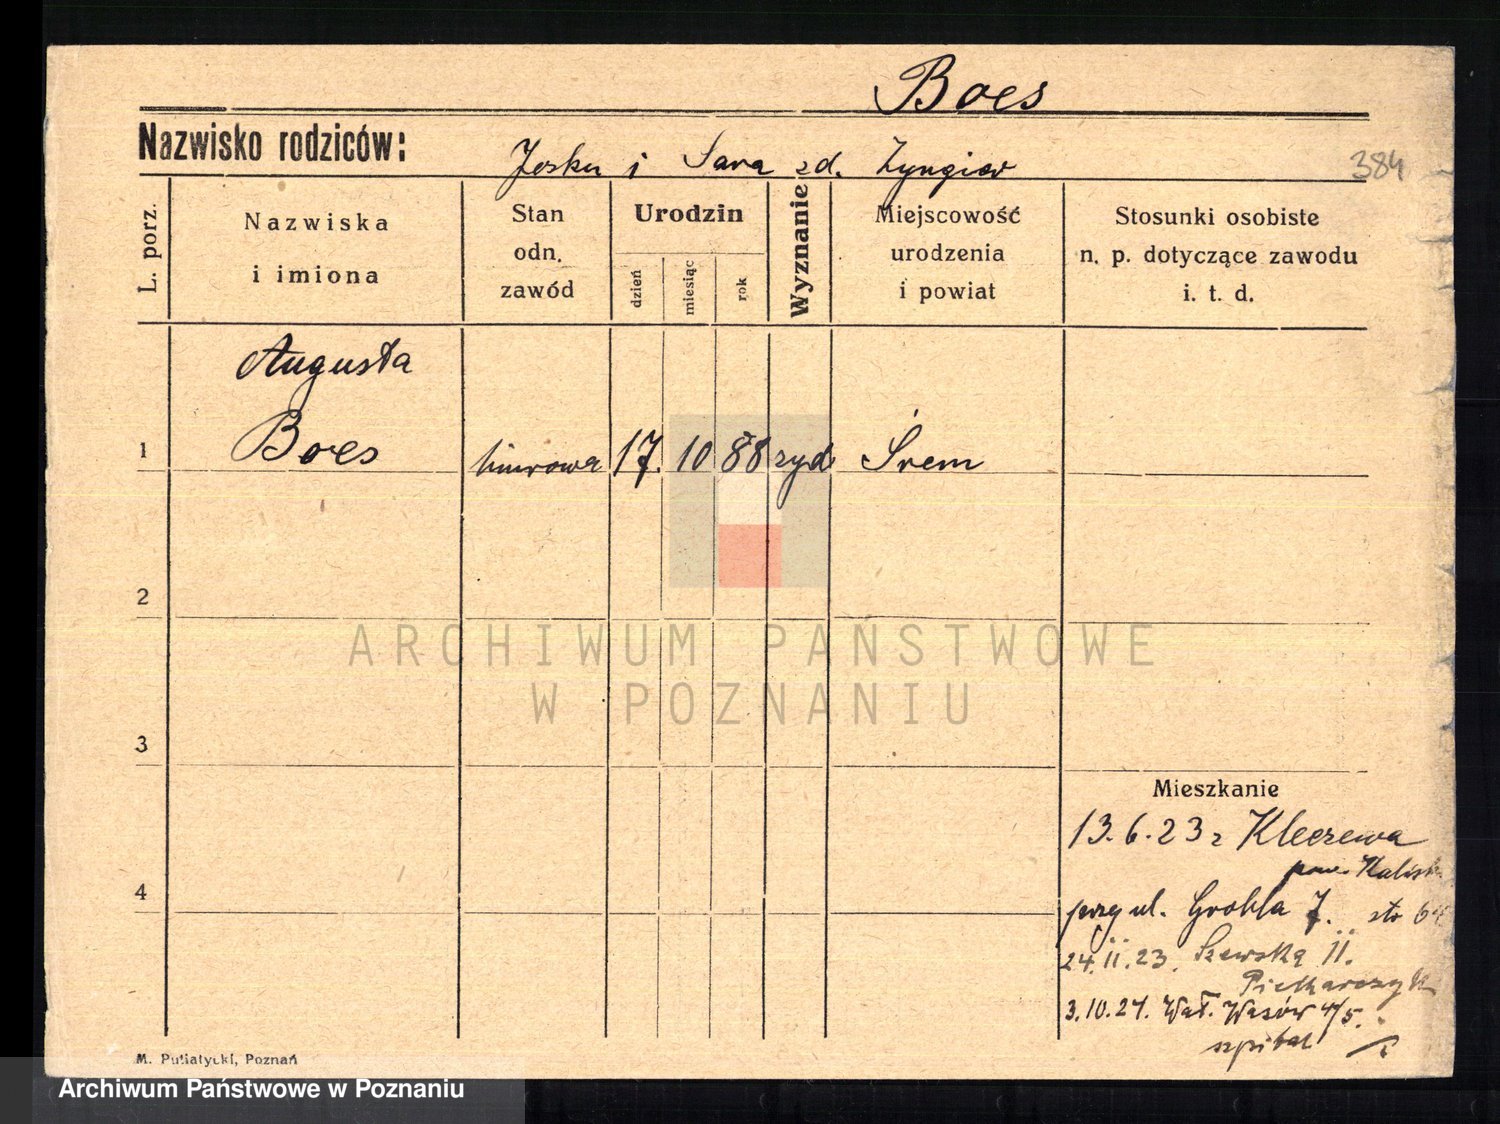 Boes
Nazwisko rodziców: Josku i Sara zd. Zyngier
384
L. porz.
Nazwiska
i imiona
Stan
odn.
zawód
Urodzin
dzień
miesiąc
rok
Wyznanie
Miejscowość
urodzenia
i powiat
Stosunki osobiste
n. p. dotyczące zawodu
i. t. d.
Augusta
1 Boes 17. 10 88 żyd Śrem
2
3
4
Mieszkanie
13.6.23 z Kleczewa
pow. Kalisk
przy ul. Grobla 7. str 64
24.11.23. Szewską 11.
Piekarczyk
3.10.24. Wał. Wazów 4/5.
szpital
M. Putiatycki, Poznań
ARCHIWUM PAŃSTWOWE
W POZNANIU
Archiwum Państwowe w Poznaniu